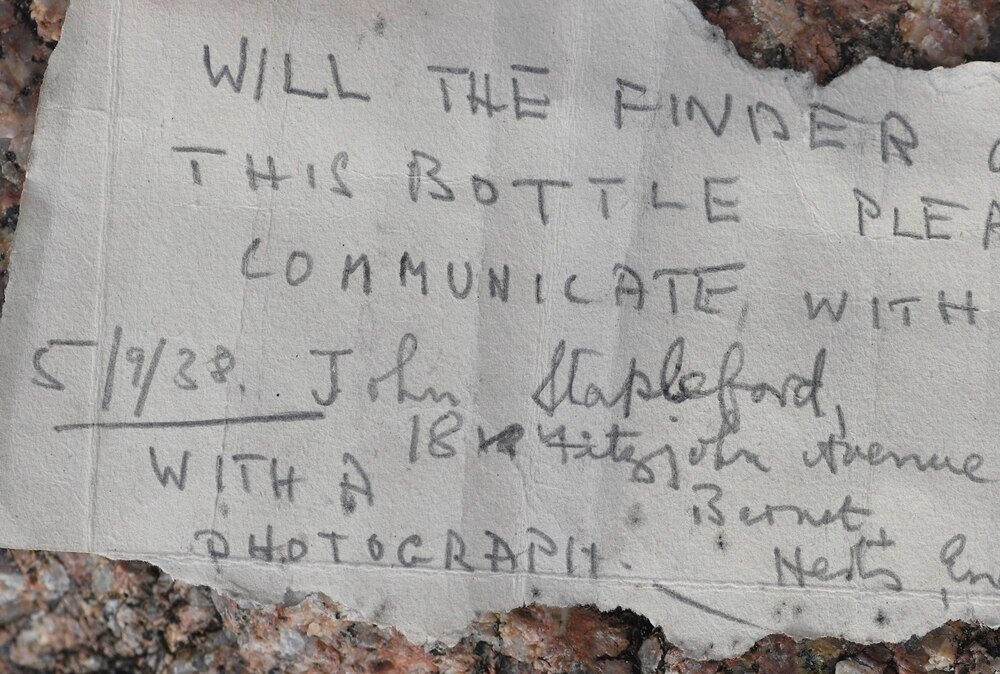 WILL THE FINDER
THIS BOTTLE PLEA
COMMUNICATE, WITH
5/9/38. John Stapleford,
18 Fitzjohn Avenue
WITH A
Barnet,
PHOTOGRAPH.
Herts En